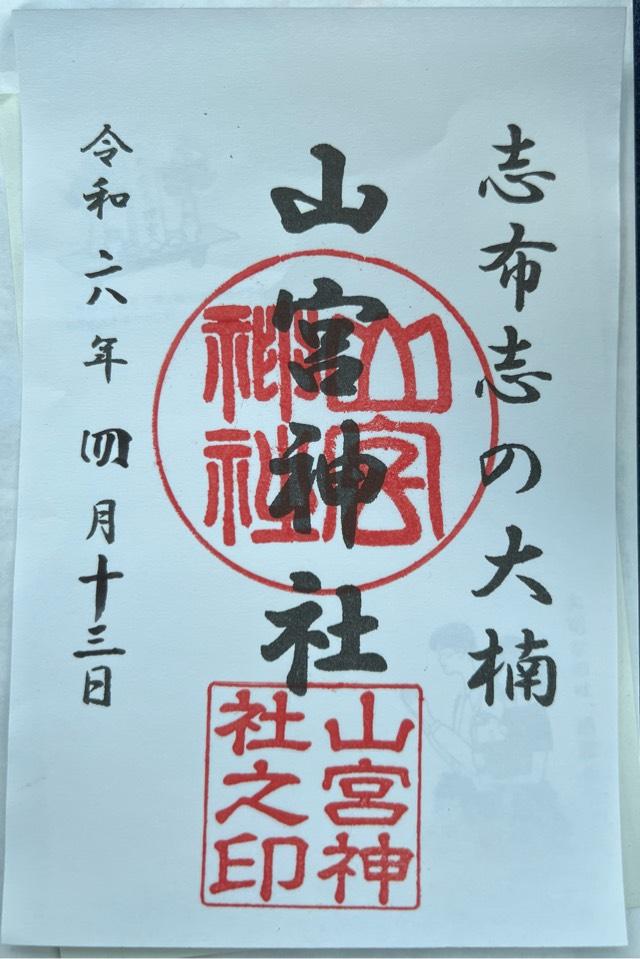 志布志の大楠
山宮神社
令和六年四月十三日
山宮神
社之印